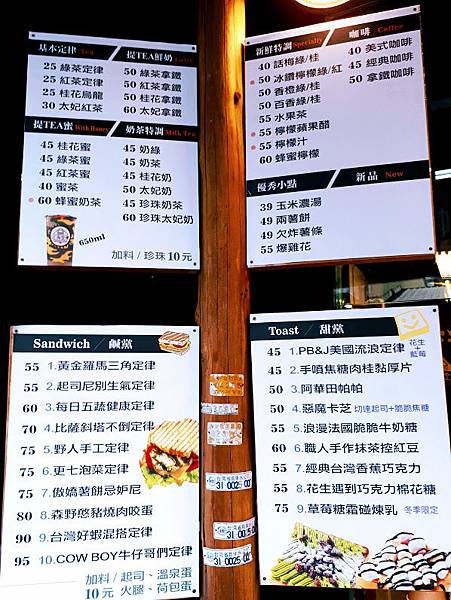 基本定律 Tea
25 綠茶定律
25 紅茶定律
25 桂花烏龍
30 太妃紅茶
提TEA鮮奶 Latte
50 綠茶拿鐵
50 紅茶拿鐵
50 桂花拿鐵
60 太妃拿鐵
提TEA蜜 With Honey
45 桂花蜜
45 綠茶蜜
45 紅茶蜜
40 蜜茶
60 蜂蜜奶茶
650ml
奶茶特調 Milk Tea
45 奶綠
45 奶茶
45 桂花奶
50 太妃奶
45 珍珠奶茶
60 珍珠太妃奶
加料/珍珠 10元
新鮮特調 Specialty
40 話梅綠/桂
50 冰鑽檸檬綠/紅
50 香橙綠/桂
50 百香綠/桂
55 水果茶
55 檸檬蘋果醋
55 檸檬汁
60 蜂蜜檸檬
咖啡 Coffee
40 美式咖啡
45 經典咖啡
50 拿鐵咖啡
優秀小點
新品 New
39 玉米濃湯
49 兩薯餅
49 欠炸薯條
55 爆雞花
Sandwich / 鹹黨
55 1.黃金羅馬三角定律
55 2.起司尼別生氣定律
60 3.每日五蔬健康定律
70 4.比薩斜塔不倒定律
75 5.野人手工定律
75 6.更七泡菜定律
75 7.傲嬌薯餅忌妒尼
80 8.森野憨豬燒肉咬蛋
90 9.台灣好蝦混搭定律
95 10.COW BOY牛仔哥們定律
加料/起司、溫泉蛋
10元 火腿、荷包蛋
Toast / 甜黨
花生
+
藍莓
45 1.PB&J美國流浪定律
45 2.手噴焦糖肉桂黏厚片
50 3.阿華田帕帕
50 4.惡魔卡芝 切達起司+脆脆焦糖
55 5.浪漫法國脆脆牛奶糖
60 6.職人手作抹茶控紅豆
55 7.經典台灣香蕉巧克力
55 8.花生遇到巧克力棉花糖
75 9.草莓糖霜碰煉乳 冬季限定
31 0025 00
31 0025 00